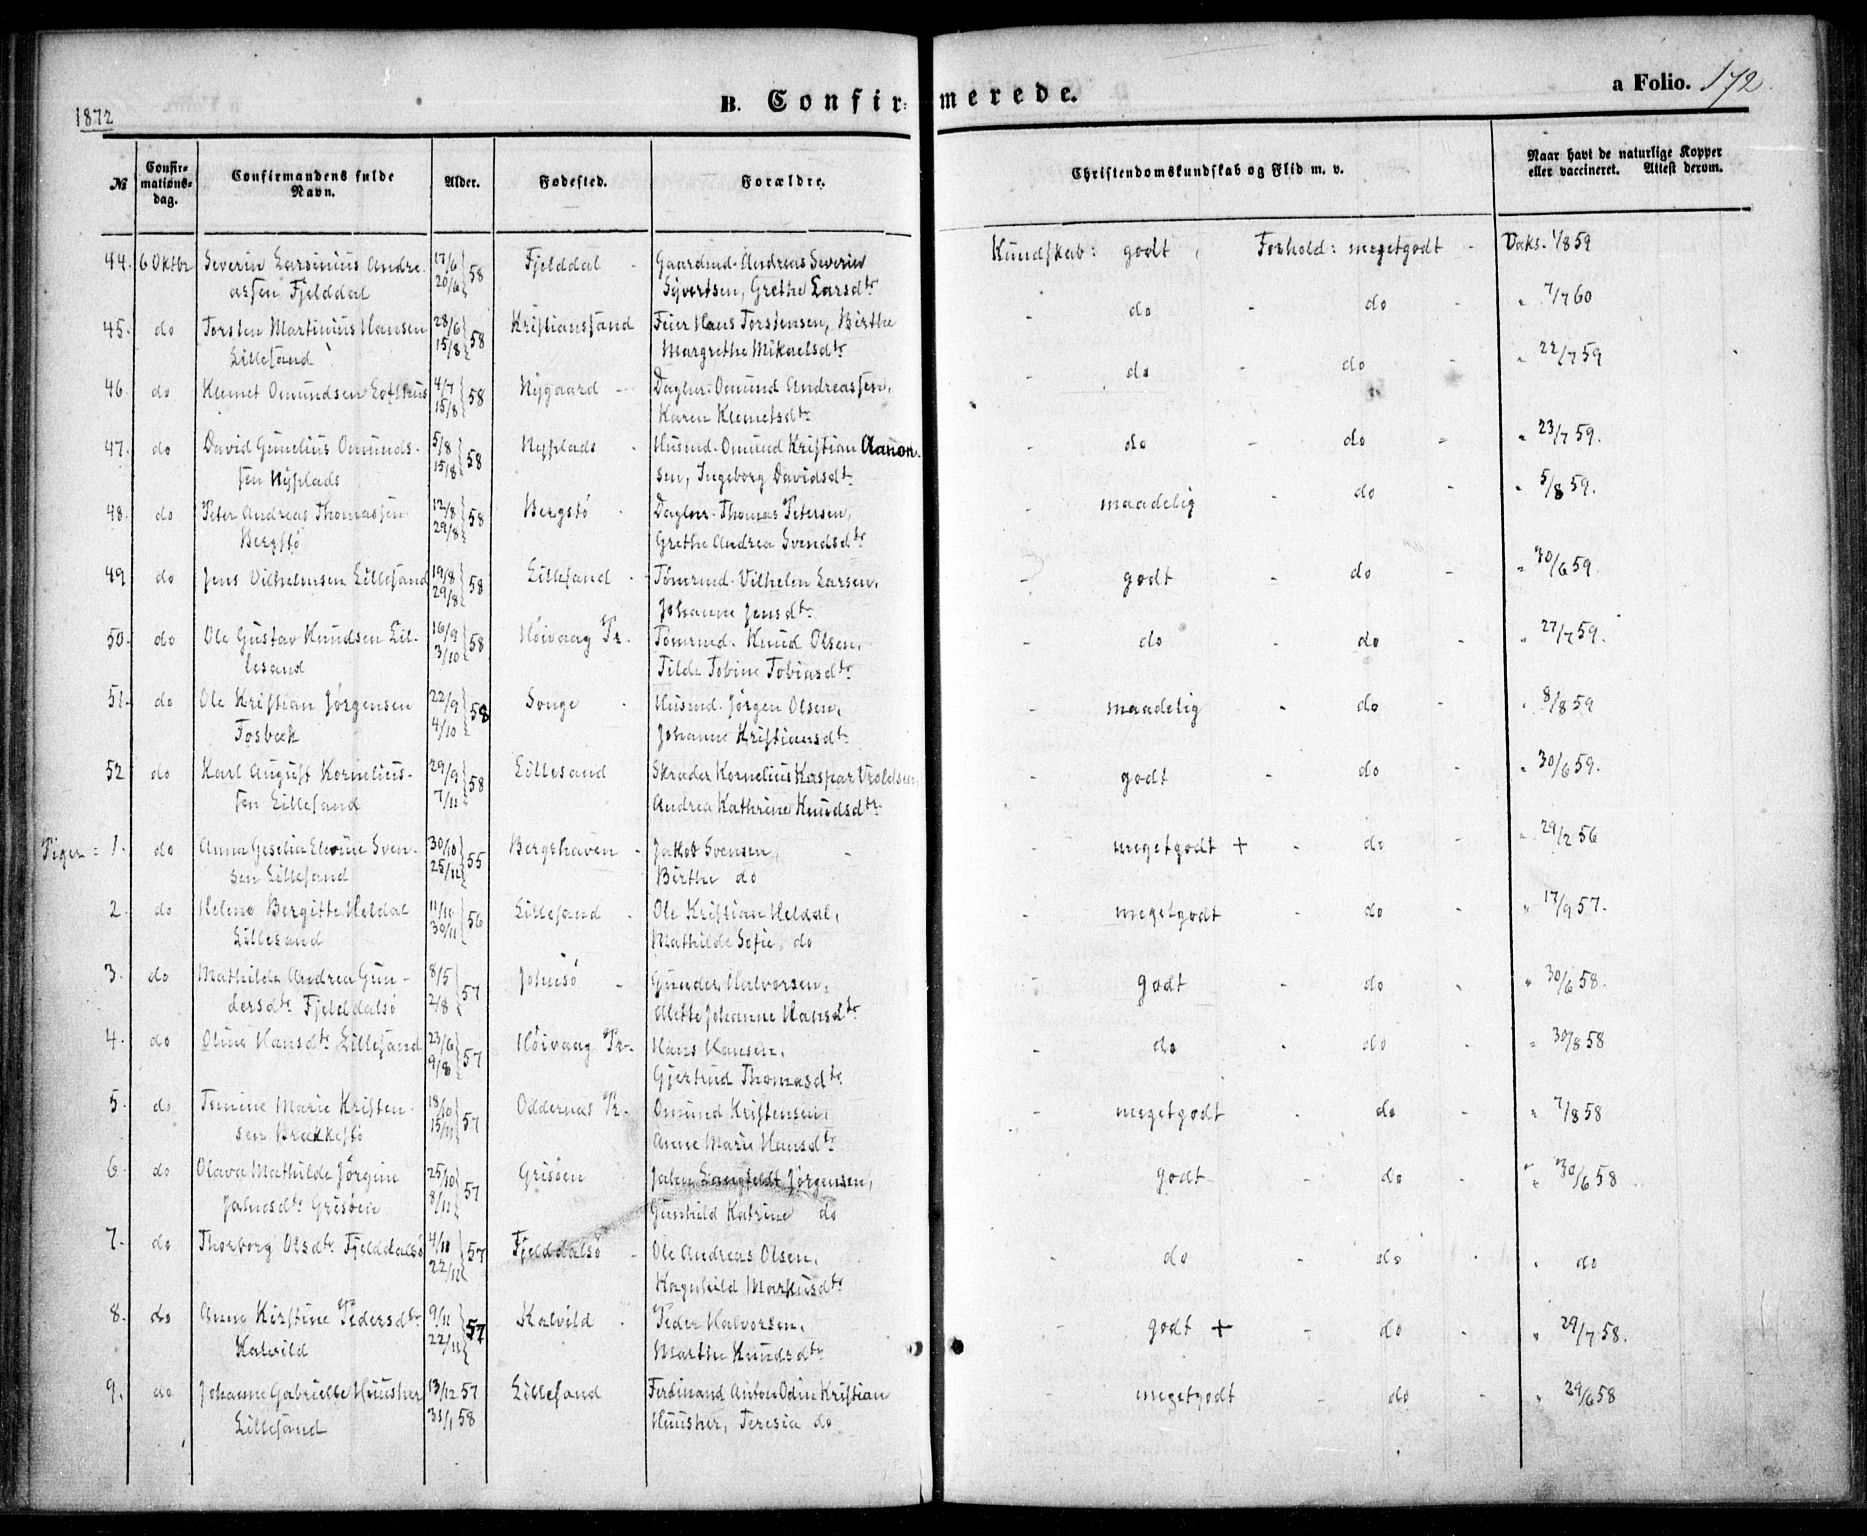 1872
B. Confir= merede.
a Folio. 172.
№ Confir=mations=dag. Confirmandens fulde Navn. Alder. Fødested. Forældre. Christendomskundskab og Flid m. v. Naar havt de naturlige Kopper eller vaccineret. Attest derom.
44. 6 Oktbr Severin Larsinius Andre- 17/6 58 Fjelddal - Gaardmd. Andreas Severin Kundskab: godt, Forhold: megetgodt - Vaks. 1/8 59
assen Fjelddal 20/6 Syvertsen, Grethe Larsdtr
45. do Torsten Martinius Hansen 28/6 58 Kristianssand Feier Hans Torstensen, Birthe - do - do - " 7/7 60
Lillesand 15/8 Margrethe Mikaelsdtr
46. do Klemet Omundsen 4/7 58 Nygaard - Daglr. Omund Andreassen, - do - do - " 22/7 59
15/8 Karen Klemetsdtr
47. do David Gunelius Omunds- 5/8 58 Nyplads - Husmd. Omund Kristian Aanon- - do - do - " 23/7 59.
sen Nyplads 15/8 sen, Ingeborg Davidsdtr
48. do Peter Andreas Thomassen 12/8 58 Bergstø - Daglr. Thomas Petersen, - maadelig - do - " 5/8 59.
Bergstø 29/8 Grethe Andrea Svendsdtr
49 do Jens Vilhelmsen Lillesand 19/8 58 Lillesand - Tømrmd. Vilhelm Larsen, - godt - do - " 30/6 59.
29/8 Johanne Jensdtr
50. do Ole Gustav Knudsen Lil- 16/9 58 Høivaag Pr. Tømrmd. Knud Olsen, - do - do - " 27/7 59.
lesand 3/10 Tilde Tobine Tobiasdtr
51. do Ole Kristian Jørgensen 22/9 58 Songe - Husmd. Jørgen Olsen, - maadelig - do - " 8/8 59
Fosbæk 4/10 Johanne Kristiansdtr
52 do Karl August Kornelius- 29/9 58 Lillesand Skræder Kornelius Kaspar - godt - do " 30/6 59.
sen Lillesand 7/11 Andrea Kathrine Knudsdtr
Piger = 1. do Anna Geselia Elevine Sven- 30/10 55 Bergshaven - Jakob Svensen, - megetgodt + - do - " 29/2 56
sen Lillesand 25/11 Birthe do
2. do Helene Bergitte Heldal 11/10 56 Lillesand - Ole Kristian Heldal, - megetgodt - do - " 17/9 57.
Lillesand 30/11 Mathilde Sofie do
3. do Mathilde Andrea Gun- 8/5 57 Johnsø - Gunder Halvorsen, - godt - do - " 30/6 58.
dersdtr Fjelddalsø 2/8 Mette Johanne Hansdtr
4. do Oline Hansdtr Lillesand 23/6 57 Høivaag Pr. Hans Hansen, - do - do - " 30/8 58
9/8 Gjertrud Thomasdtr
5. do Tomine Marie Kristen- 18/10 57 Oddernæs Pr. Omund Kristensen, - megetgodt - do - " 7/8 58
sen Brækkestø 15/11 Anne Marie Hansdtr
6. do Olava Mathilde Jørgine 25/10 57 Grisøen Jahn Langfeldt Jørgensen, godt - do - " 30/6 58
Jahnsdtr Grisøen 8/11 Gunhild Katrine do
7. do Thorborg Olsdtr Fjelddalsø 4/10 57 Fjelddalsø - Ole Andreas Olsen, - do - do - " do
22/11 Ragnhild Markusdtr
8. do Anne Kirstine Pedersdtr 9/11 57 Kalvild - Peder Halvorsen, - godt + - do - " 29/7 58.
Kalvild 22/11 Marthe Knudsdtr
9. do Johanne Gabrielle Huusher 13/12 57 Lillesand Ferdinand Anton Odin Kristian megetgodt - do - " 29/6 58
Lillesand 31/1 58 Huusher, Teresia do